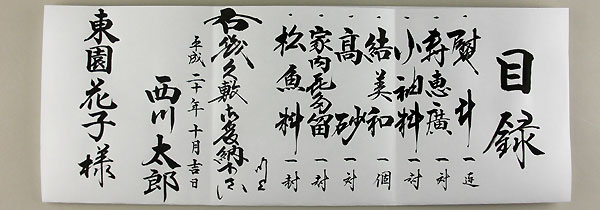 目録
一、熨斗 一連
一、寿恵廣 一対
一、小袖料 一封
一、結美和 一個
一、高砂 一対
一、家内喜多留 一封
一、松魚料 一封
右幾久敷御受納下さい
平成二十年十月吉日
西川太郎
東園花子様